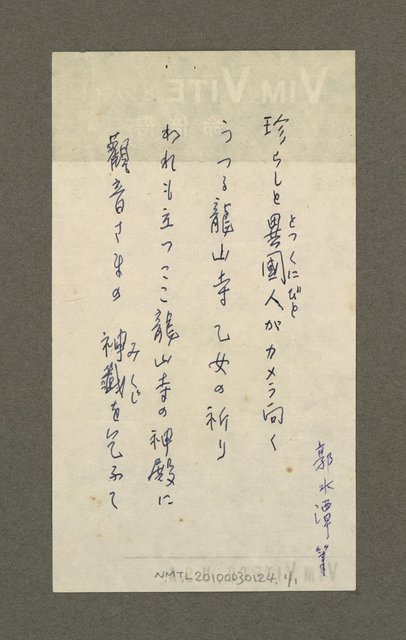 郭水潭筆
珍らしと異國人がカメラ向く
とつくにびと
うつる龍山寺乙女の祈り
われも立つここ龍山寺の神殿に
觀音さまの神籤を乞ふて
みくじ
VIM VITE
NMTL20100030124. 1/1